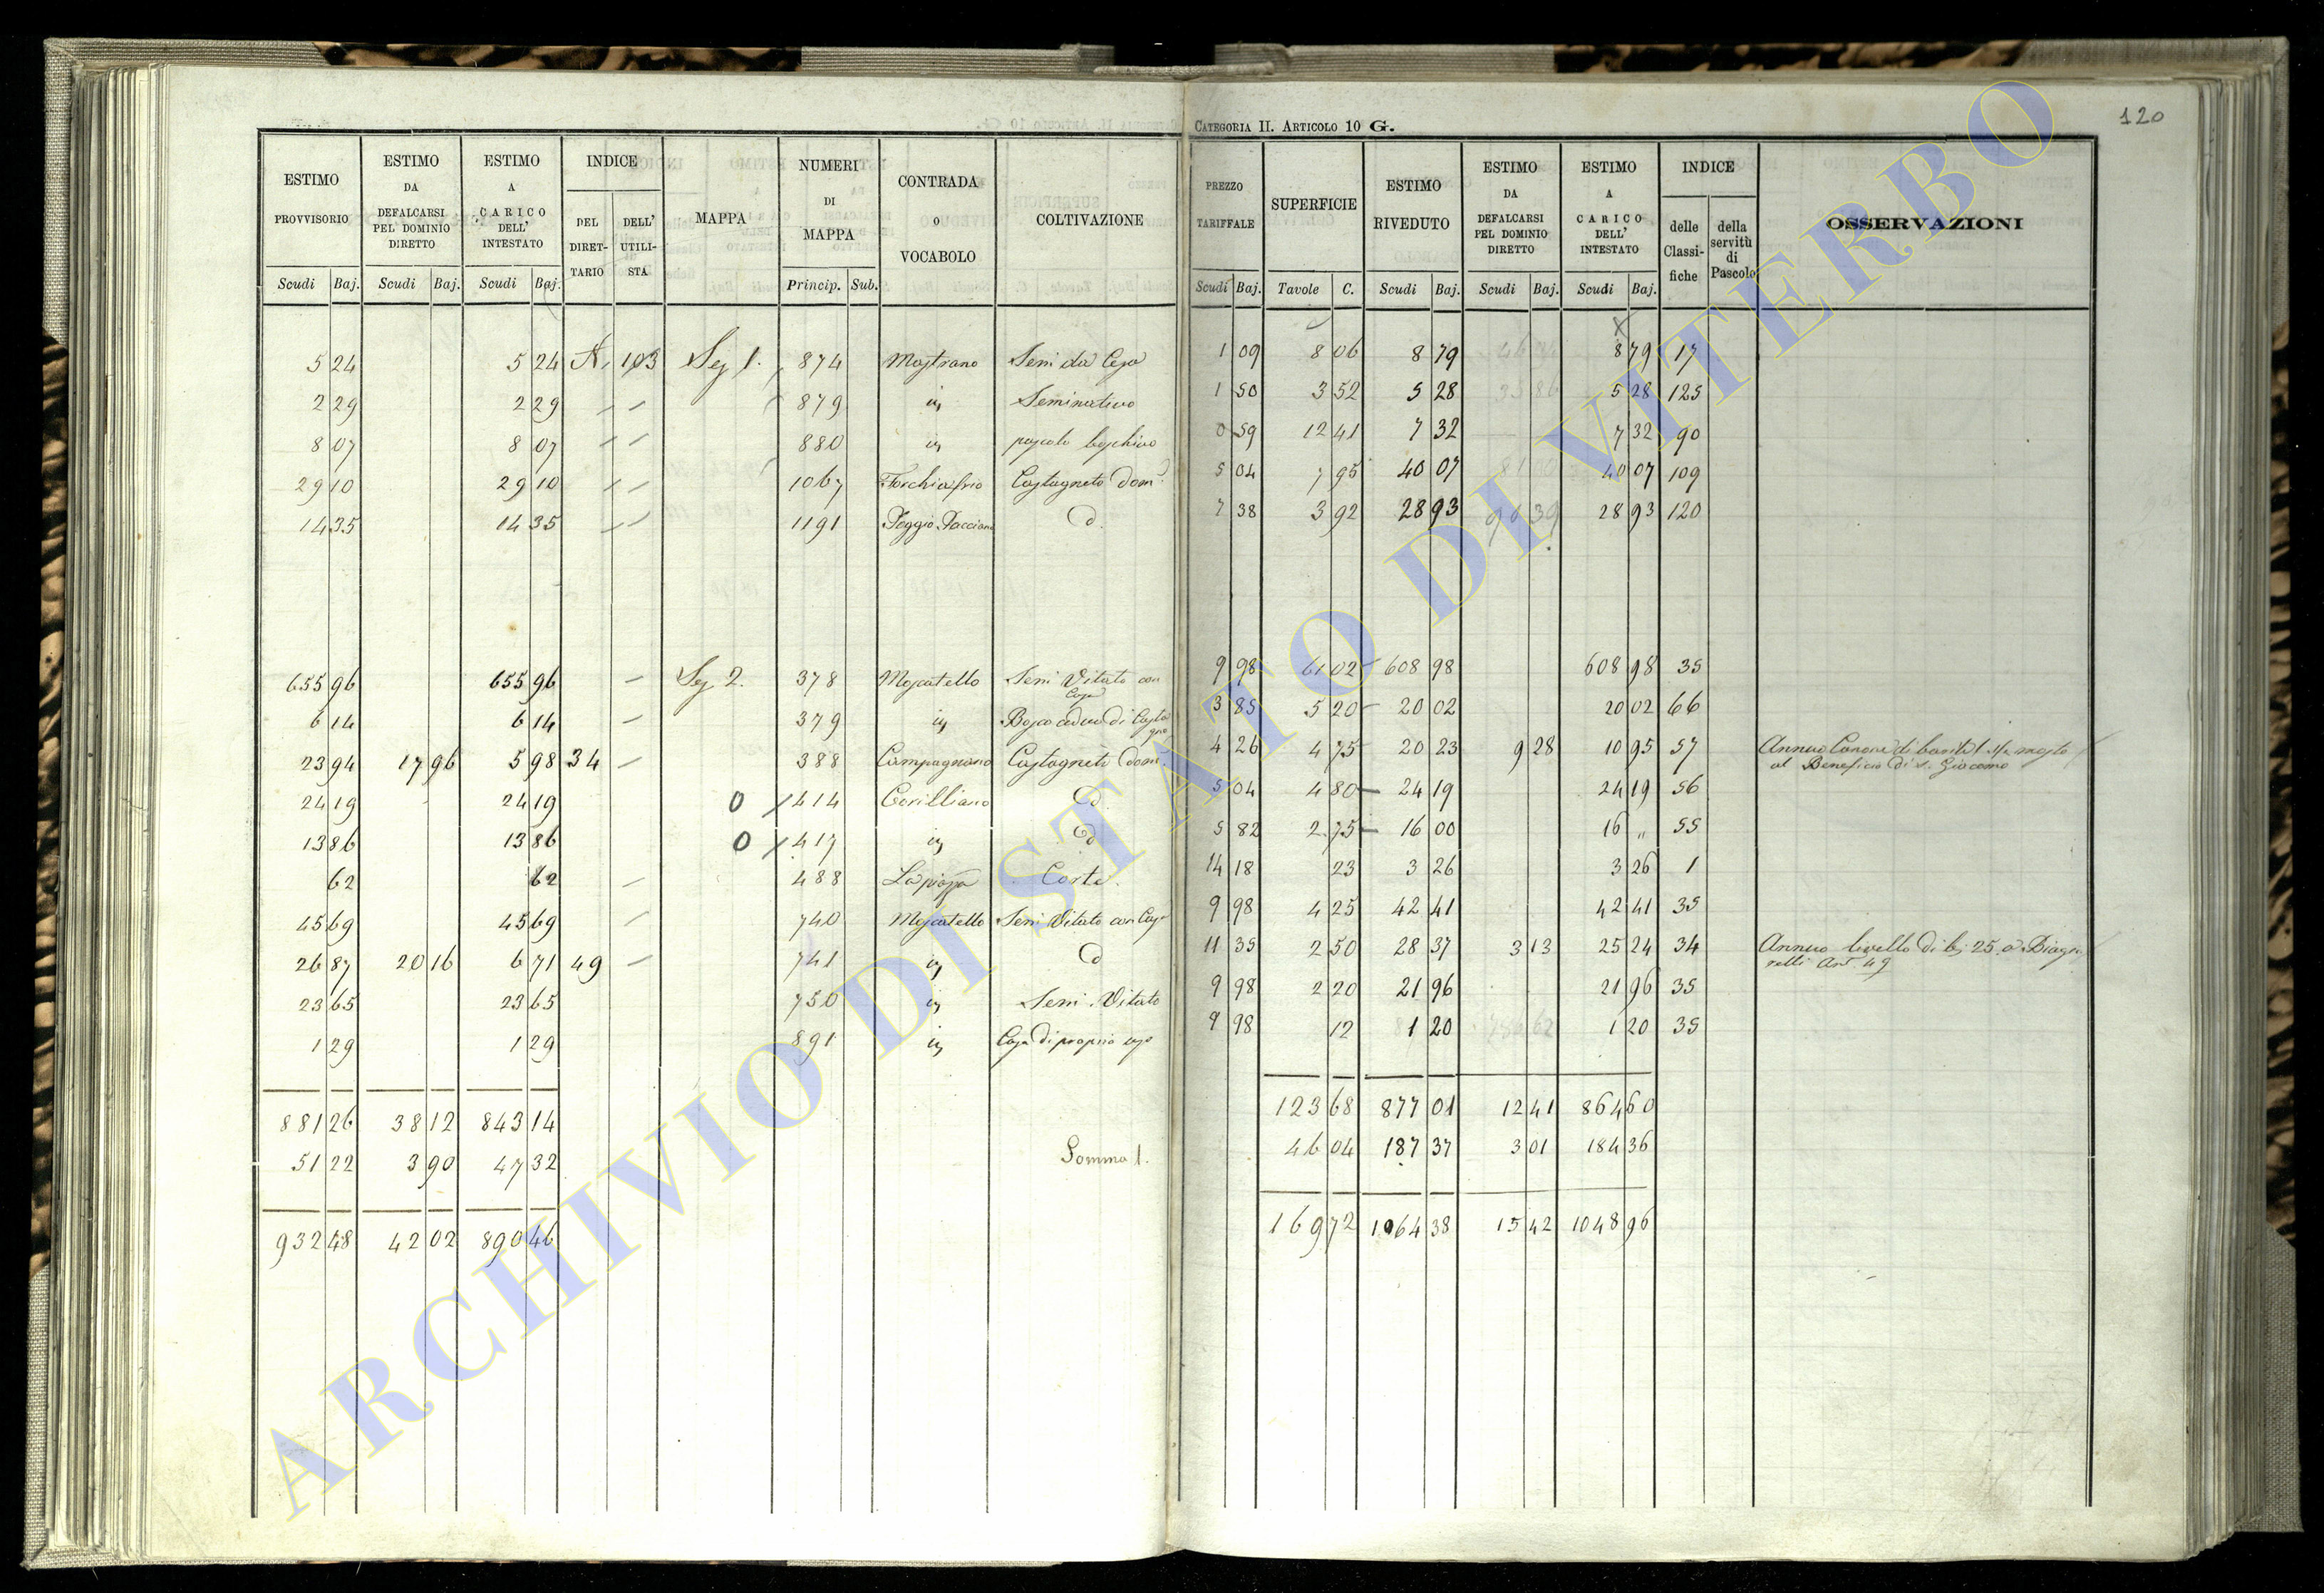 CATEGORIA II. ARTICOLO 10 G.
120
ESTIMO PROVVISORIO | ESTIMO DA DEFALCARSI PEL DOMINIO DIRETTO | ESTIMO A CARICO DELL' INTESTATO | INDICE DEL DIRET-TARIO | DELL' UTILI-STA | MAPPA | NUMERI DI MAPPA | CONTRADA O VOCABOLO | COLTIVAZIONE | PREZZO TARIFFALE | SUPERFICIE | ESTIMO RIVEDUTO | ESTIMO DA DEFALCARSI PEL DOMINIO DIRETTO | ESTIMO A CARICO DELL' INTESTATO | INDICE delle Classi-fiche | della servitù di Pascolo | OSSERVAZIONI
Scudi | Baj. | Scudi | Baj. | Scudi | Baj. | Princip. | Sub. | Scudi | Baj. | Tavole | C. | Scudi | Baj. | Scudi | Baj. | Scudi | Baj.
5 24 | 5 24 | A. 103 | Sez 1. | 874 | Mastrano | Semi da Cesa | 1 09 | 8 06 | 8 79 | 8 79 | 17
2 29 | 2 29 | 879 | in | Seminativo | 1 50 | 3 52 | 5 28 | 5 28 | 125
8 07 | 8 07 | 880 | in | pascolo boschivo | 0 59 | 12 41 | 7 32 | 7 32 | 90
29 10 | 29 10 | 1067 | Forchiafrio | Castagneto dom. | 5 04 | 7 95 | 40 07 | 40 07 | 109
14 35 | 14 35 | 1191 | Poggio | d. | 7 38 | 3 92 | 28 93 | 28 93 | 120
655 96 | 655 96 | Sez 2. | 378 | Moscatello | Semi Vitato con Casa | 9 98 | 61 02 | 608 98 | 608 98 | 35
6 14 | 6 14 | 379 | in | Bosco ceduo di Castagno | 3 85 | 5 20 | 20 02 | 20 02 | 66
23 94 | 17 96 | 5 98 | 34 | 388 | Campagnano | Castagneto dom. | 4 26 | 4 75 | 20 23 | 9 28 | 10 95 | 57 | Annuo Canone di
al Beneficio di S. Giacomo
24 19 | 24 19 | 0 | 414 | Corilliano | d | 5 04 | 4 80 | 24 19 | 24 19 | 56
13 86 | 13 86 | 0 | 417 | in | d | 5 82 | 2 75 | 16 00 | 16 " | 55
62 | 62 | 488 | La piazza | Corte | 14 18 | 23 | 3 26 | 3 26 | 1
45 69 | 45 69 | 740 | Moscatello | Semi Vitato con Casa | 9 98 | 4 25 | 42 41 | 42 41 | 35
26 87 | 20 16 | 6 71 | 49 | 741 | in | d | 11 35 | 2 50 | 28 37 | 3 13 | 25 24 | 34 | Annuo livello di bj 25 a
Art. 49
23 65 | 23 65 | 750 | in | Semi Vitato | 9 98 | 2 20 | 21 96 | 21 96 | 35
1 29 | 1 29 | 891 | in | Casa di proprio uso | 9 98 | 12 | 1 20 | 1 20 | 35
881 26 | 38 12 | 843 14 | 123 68 | 877 01 | 12 41 | 864 60
51 22 | 3 90 | 47 32 | Somma 1. | 46 04 | 187 37 | 3 01 | 184 36
932 48 | 42 02 | 890 46 | 169 72 | 1064 38 | 15 42 | 1048 96
ARCHIVIO DI STATO DI VITERBO